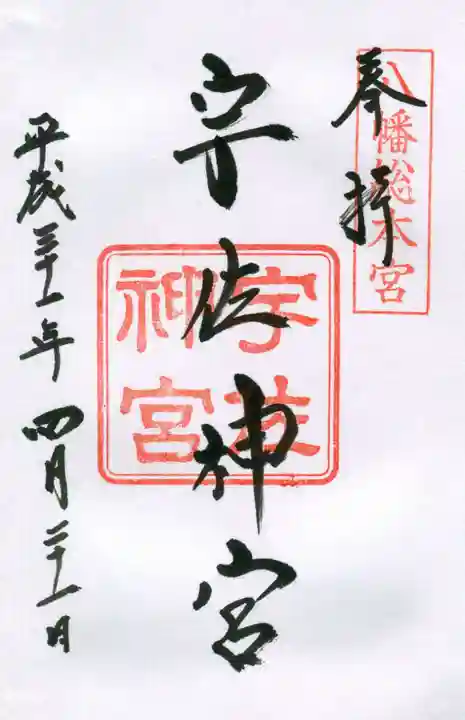 八幡総本宮
奉拝
宇佐神宮
宇佐
神宮
平成三十一年四月二十一日